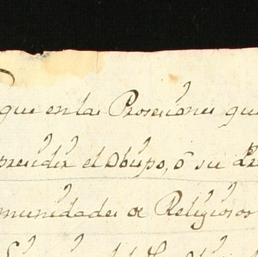 que en las Prosesiones que
precidir el Obispo, ó su
munidades de Religiosos